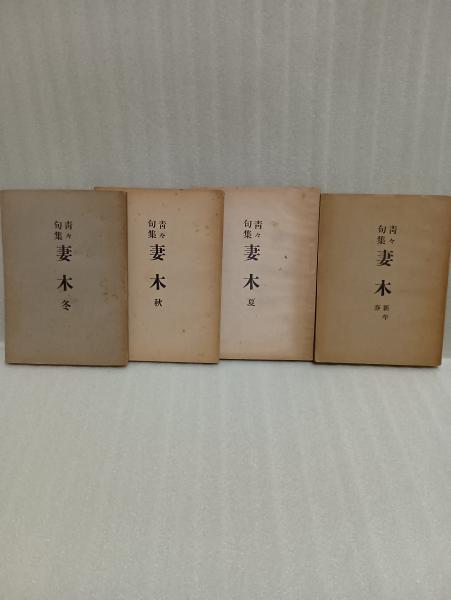 青々
句集
妻木
冬
青々
句集
妻木
秋
青々
句集
妻木
夏
青々
句集
妻木
新年
春